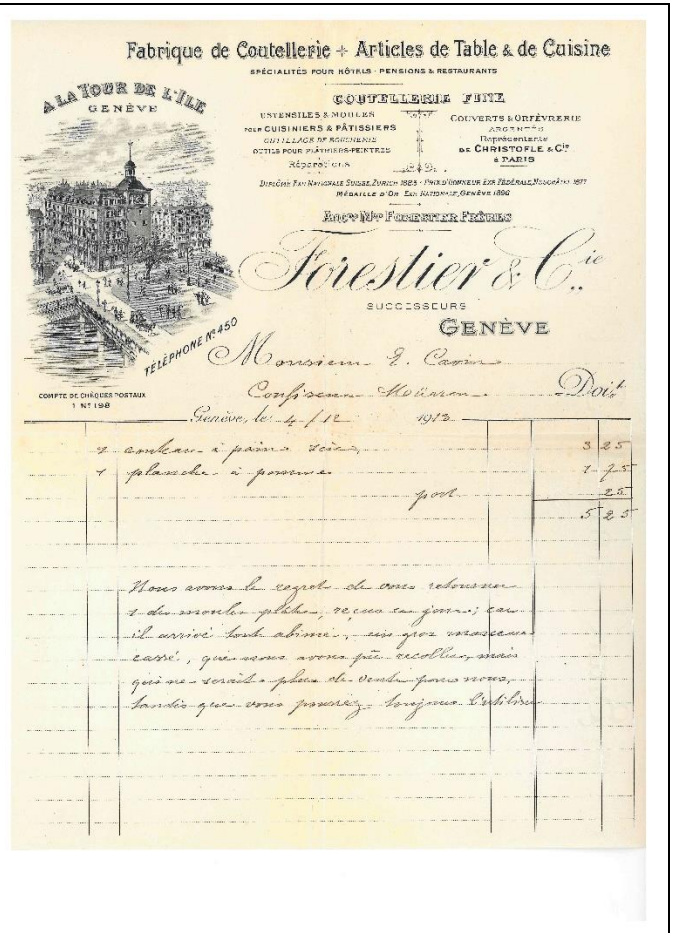 Fabrique de Coutellerie + Articles de Table & de Cuisine
SPÉCIALITÉS POUR HÔTELS - PENSIONS & RESTAURANTS
A LA TOUR DE L'ILE
GENÈVE
COUTELLERIE FINE
USTENSILES & MOULES
POUR CUISINIERS & PÂTISSIERS
OUTILLAGE DE BOUCHERIE
OUTILS POUR PLÂTRIERS-PEINTRES
Réparations
COUVERTS & ORFÈVRERIE
ARGENTÉS
Représentants
DE CHRISTOFLE & Cie
à PARIS
DIPLÔME EXP. NATIONALE SUISSE, ZURICH 1883 - PRIX D'HONNEUR EXP. FÉDÉRALE, NEUCHÂTEL 1877
MÉDAILLE D'OR EXP. NATIONALE, GENÈVE 1896
ANCne Mon FORESTIER FRÈRES
Forestier & Cie
SUCCESSEURS
GENÈVE
TÉLÉPHONE No 450
Monsieur E.
COMPTE DE CHÈQUES POSTAUX
1 No 198
Confiseur Mürren Doit
Genève, le 4/12 1913
1 couteau à pain scie 3 25
1 planche à 1 75
port 25
5 25
Nous avons le regret de vous retourner
1 des moules plâtre, reçus ce jour; car
il arrive tout abimé, un gros morceau
cassé, que nous avons pu recoller, mais
qui ne serait plus de vente pour nous,
tandis que vous pourrez toujours l'utiliser